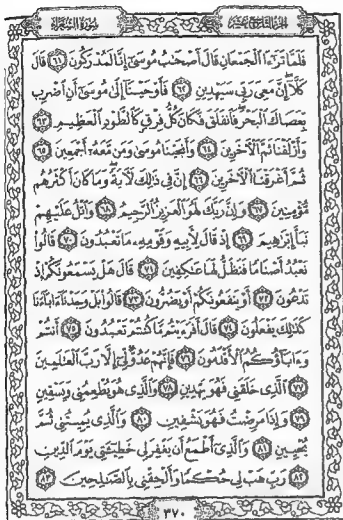 الجزء التاسع عشر سورة الشعراء
فَلَمَّا تَرَٰٓءَا ٱلْجَمْعَانِ قَالَ أَصْحَٰبُ مُوسَىٰٓ إِنَّا لَمُدْرَكُونَ ٦١ قَالَ
كَلَّآ إِنَّ مَعِىَ رَبِّى سَيَهْدِينِ ٦٢ فَأَوْحَيْنَآ إِلَىٰ مُوسَىٰٓ أَنِ ٱضْرِب
بِّعَصَاكَ ٱلْبَحْرَ فَٱنفَلَقَ فَكَانَ كُلُّ فِرْقٍ كَٱلطَّوْدِ ٱلْعَظِيمِ ٦٣
وَأَزْلَفْنَا ثَمَّ ٱلْءَاخَرِينَ ٦٤ وَأَنجَيْنَا مُوسَىٰ وَمَن مَّعَهُۥٓ أَجْمَعِينَ ٦٥
ثُمَّ أَغْرَقْنَا ٱلْءَاخَرِينَ ٦٦ إِنَّ فِى ذَٰلِكَ لَءَايَةً وَمَا كَانَ أَكْثَرُهُم
مُّؤْمِنِينَ ٦٧ وَإِنَّ رَبَّكَ لَهُوَ ٱلْعَزِيزُ ٱلرَّحِيمُ ٦٨ وَٱتْلُ عَلَيْهِمْ
نَبَأَ إِبْرَٰهِيمَ ٦٩ إِذْ قَالَ لِأَبِيهِ وَقَوْمِهِۦ مَا تَعْبُدُونَ ٧٠ قَالُوا۟
نَعْبُدُ أَصْنَامًا فَنَظَلُّ لَهَا عَٰكِفِينَ ٧١ قَالَ هَلْ يَسْمَعُونَكُمْ إِذْ
تَدْعُونَ ٧٢ أَوْ يَنفَعُونَكُمْ أَوْ يَضُرُّونَ ٧٣ قَالُوا۟ بَلْ وَجَدْنَآ ءَابَآءَنَا
كَذَٰلِكَ يَفْعَلُونَ ٧٤ قَالَ أَفَرَءَيْتُم مَّا كُنتُمْ تَعْبُدُونَ ٧٥ أَنتُمْ
وَءَابَآؤُكُمُ ٱلْأَقْدَمُونَ ٧٦ فَإِنَّهُمْ عَدُوٌّ لِّىٓ إِلَّا رَبَّ ٱلْعَٰلَمِينَ
٧٧ ٱلَّذِى خَلَقَنِى فَهُوَ يَهْدِينِ ٧٨ وَٱلَّذِى هُوَ يُطْعِمُنِى وَيَسْقِينِ
٧٩ وَإِذَا مَرِضْتُ فَهُوَ يَشْفِينِ ٨٠ وَٱلَّذِى يُمِيتُنِى ثُمَّ
يُحْيِينِ ٨١ وَٱلَّذِىٓ أَطْمَعُ أَن يَغْفِرَ لِى خَطِيٓـَٔتِى يَوْمَ ٱلدِّينِ
٨٢ رَبِّ هَبْ لِى حُكْمًا وَأَلْحِقْنِى بِٱلصَّٰلِحِينَ ٨٣
٣٧٠